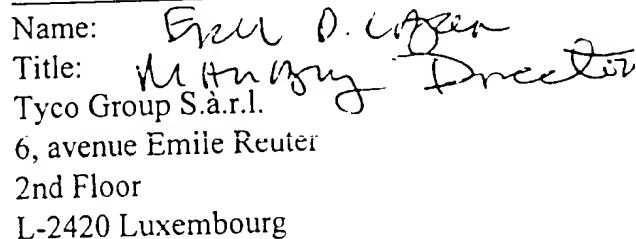 Name: D.
Title: Managing Director
Tyco Group S.à.r.l.
6, avenue Emile Reuter
2nd Floor
L-2420 Luxembourg